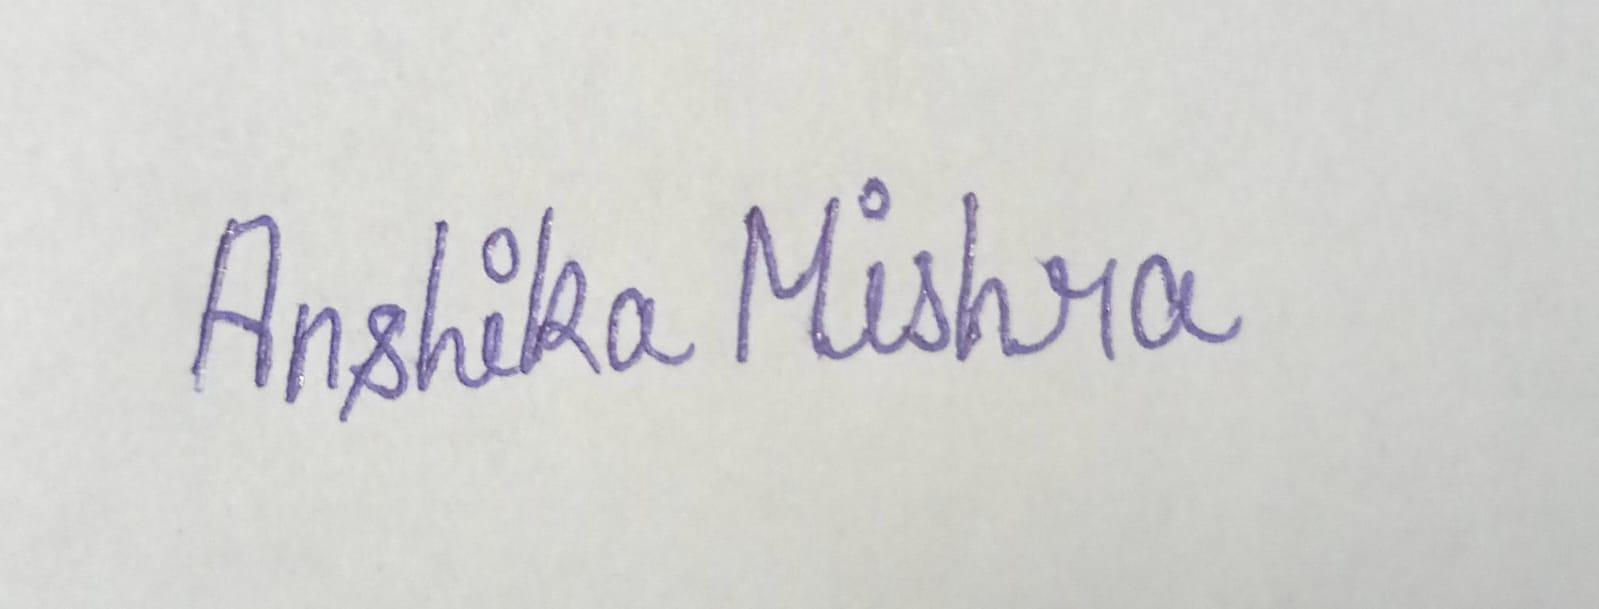 Anshika Mishra